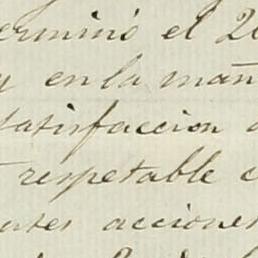 terminó el 2
y en la mañ
satisfaccion
respetable c
acciones